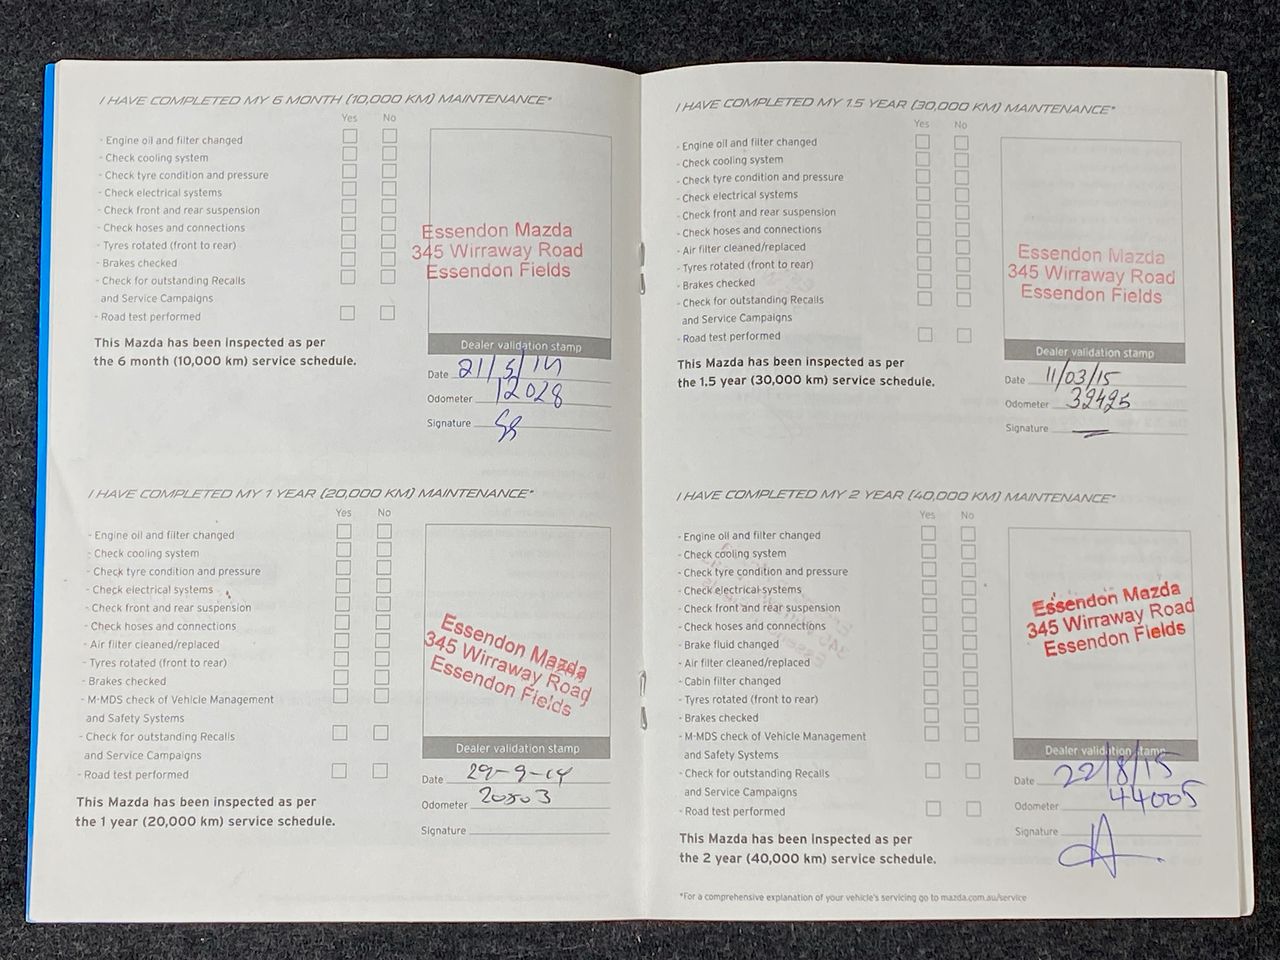 I HAVE COMPLETED MY 6 MONTH (10,000 KM) MAINTENANCE*
Yes No
- Engine oil and filter changed
- Check cooling system
- Check tyre condition and pressure
- Check electrical systems
- Check front and rear suspension
- Check hoses and connections
- Tyres rotated (front to rear)
- Brakes checked
- Check for outstanding Recalls
and Service Campaigns
- Road test performed
This Mazda has been inspected as per
the 6 month (10,000 km) service schedule.
Essendon Mazda
345 Wirraway Road
Essendon Fields
Dealer validation stamp
Date 21/5/14
Odometer 12028
Signature
I HAVE COMPLETED MY 1 YEAR (20,000 KM) MAINTENANCE*
Yes No
- Engine oil and filter changed
- Check cooling system
- Check tyre condition and pressure
- Check electrical systems
- Check front and rear suspension
- Check hoses and connections
- Air filter cleaned/replaced
- Tyres rotated (front to rear)
- Brakes checked
- M-MDS check of Vehicle Management
and Safety Systems
- Check for outstanding Recalls
and Service Campaigns
- Road test performed
This Mazda has been inspected as per
the 1 year (20,000 km) service schedule.
Essendon Mazda
345 Wirraway Road
Essendon Fields
Dealer validation stamp
Date 29-9-14
Odometer 20503
Signature
I HAVE COMPLETED MY 1.5 YEAR (30,000 KM) MAINTENANCE*
Yes No
- Engine oil and filter changed
- Check cooling system
- Check tyre condition and pressure
- Check electrical systems
- Check front and rear suspension
- Check hoses and connections
- Air filter cleaned/replaced
- Tyres rotated (front to rear)
- Brakes checked
- Check for outstanding Recalls
and Service Campaigns
- Road test performed
This Mazda has been inspected as per
the 1.5 year (30,000 km) service schedule.
Essendon Mazda
345 Wirraway Road
Essendon Fields
Dealer validation stamp
Date 11/03/15
Odometer 32425
Signature
I HAVE COMPLETED MY 2 YEAR (40,000 KM) MAINTENANCE*
Yes No
- Engine oil and filter changed
- Check cooling system
- Check tyre condition and pressure
- Check electrical systems
- Check front and rear suspension
- Check hoses and connections
- Brake fluid changed
- Air filter cleaned/replaced
- Cabin filter changed
- Tyres rotated (front to rear)
- Brakes checked
- M-MDS check of Vehicle Management
and Safety Systems
- Check for outstanding Recalls
and Service Campaigns
- Road test performed
This Mazda has been inspected as per
the 2 year (40,000 km) service schedule.
Essendon Mazda
345 Wirraway Road
Essendon Fields
Dealer validation stamp
Date 22/8/15
Odometer 44005
Signature
*For a comprehensive explanation of your vehicle's servicing go to mazda.com.au/service